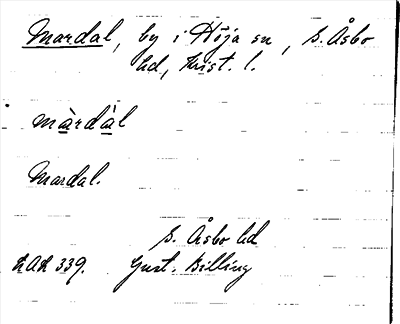 Mardal, by i Höja sn, S. Åsbo
hd, Krist. l.
màrdàl
Mardal.
S. Åsbo hd
LAL 339. Gust. Billing